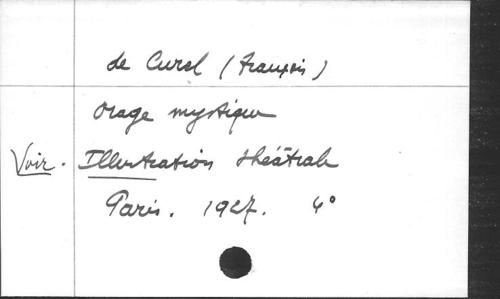 de Curel (François)
Orage mystique
Voir. Illustration théâtrale
Paris. 1927. 4°